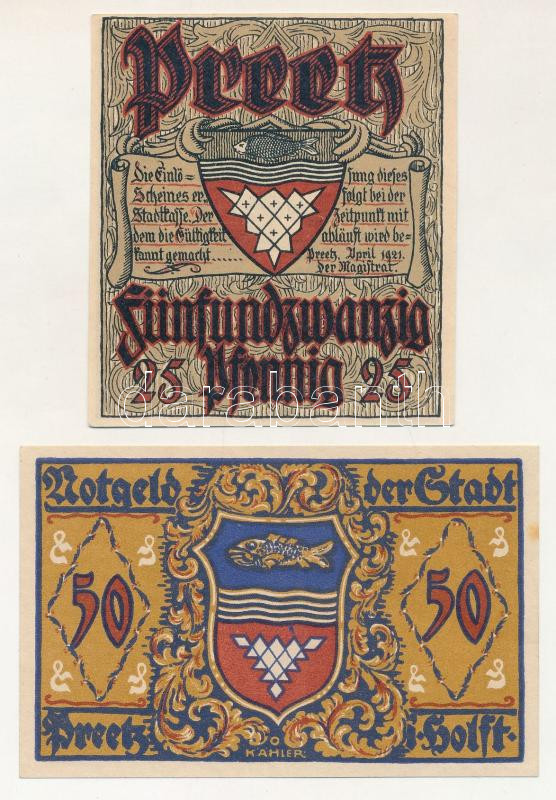 Preetz
Die Einlö= sung dieses
Scheines er= folgt bei der
Stadtkasse. Der Zeitpunkt mit
dem die Gültigkeit abläuft wird be=
kannt gemacht...... Preetz, April 1921.
Der Magistrat.
Fünfundzwanzig
25 Pfennig 25
darabanth
Notgeld der Stadt
50 50
Preetz i. Holst.
O
KÄHLER